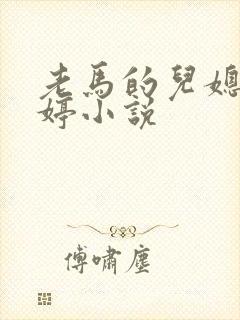 老馬的兒媳
婷小説
傅嘯塵